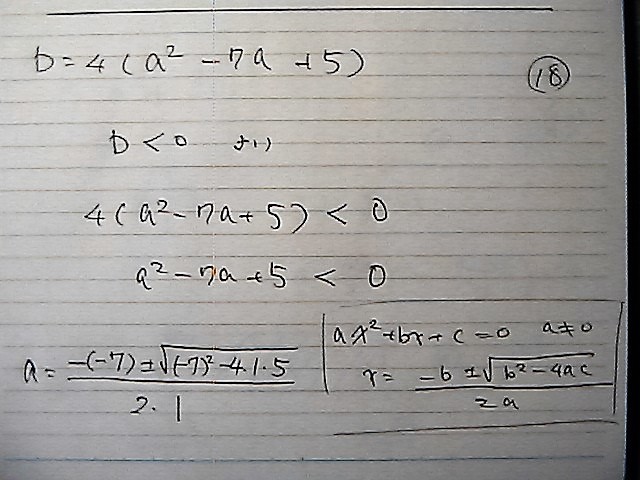 D=4(a²-7a+5)
⑱
D<0 より
4(a²-7a+5)<0
a²-7a+5<0
a=\frac{-(-7)±√((-7)²-4.1.5)}{2.1}
ax²+bx+c=0 a≠0
x=\frac{-b±√(b²-4ac)}{2a}